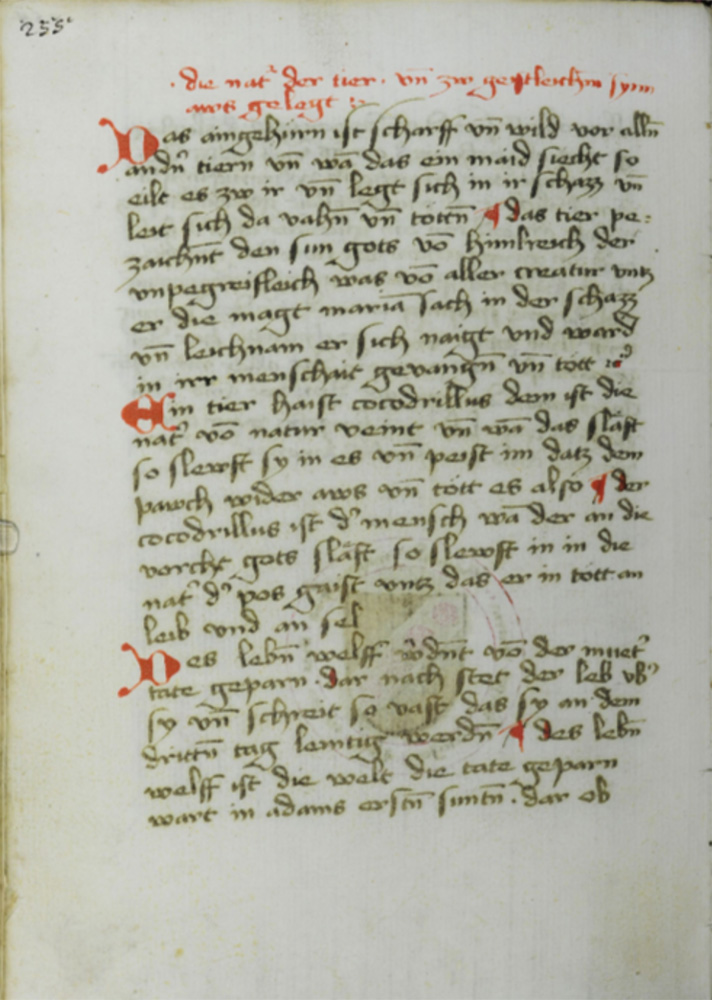 255
· die nat᷑ der tier · vn̄ zw geystleichm synn
aws gelegt
Das aingehürn ist scharff vn̄ wild vor alln̄
andn̄ tiern vn̄ wā das ein maid siecht so
eilt es zw ir vn̄ legt sich in ir schazz vn̄
leit sich da vahn̄ vn̄ töttn̄ ¶ das tier pe⸗
zaichn̄t den sun gots vō himlreich der
vnpegreifleich was vō aller creatur vntz
er die magt maria sach in der schazz
vn̄ leichnam er sich naigt vnd ward
in irr menschait gevangn̄ vn̄ tött
Ein tier haist cocodrillus dem ist die
nat᷑ vō natur veint vn̄ wā das slaft
so slewft sy in es vn̄ peist im datz dem
pawch wider aws vn̄ tött es also ¶ der
cocodrillus ist d᷑ mensch wā der an die
vorcht gots slaft so slewft in in die
nat᷑ d᷑ pos gaist vntz das er in tött an
leib vnd an sel
Des lebn̄ welff w᷑dn̄t vō der muet᷑
tate geparn · dar nach stet der leb vb᷑
sy vn̄ schreit so vast das sy an dem
drittn̄ tag lemtig werdn̄ ¶ des lebn̄
welff ist die welt die tate geparn
wart in adams erstn̄ suntn̄ · dar ob